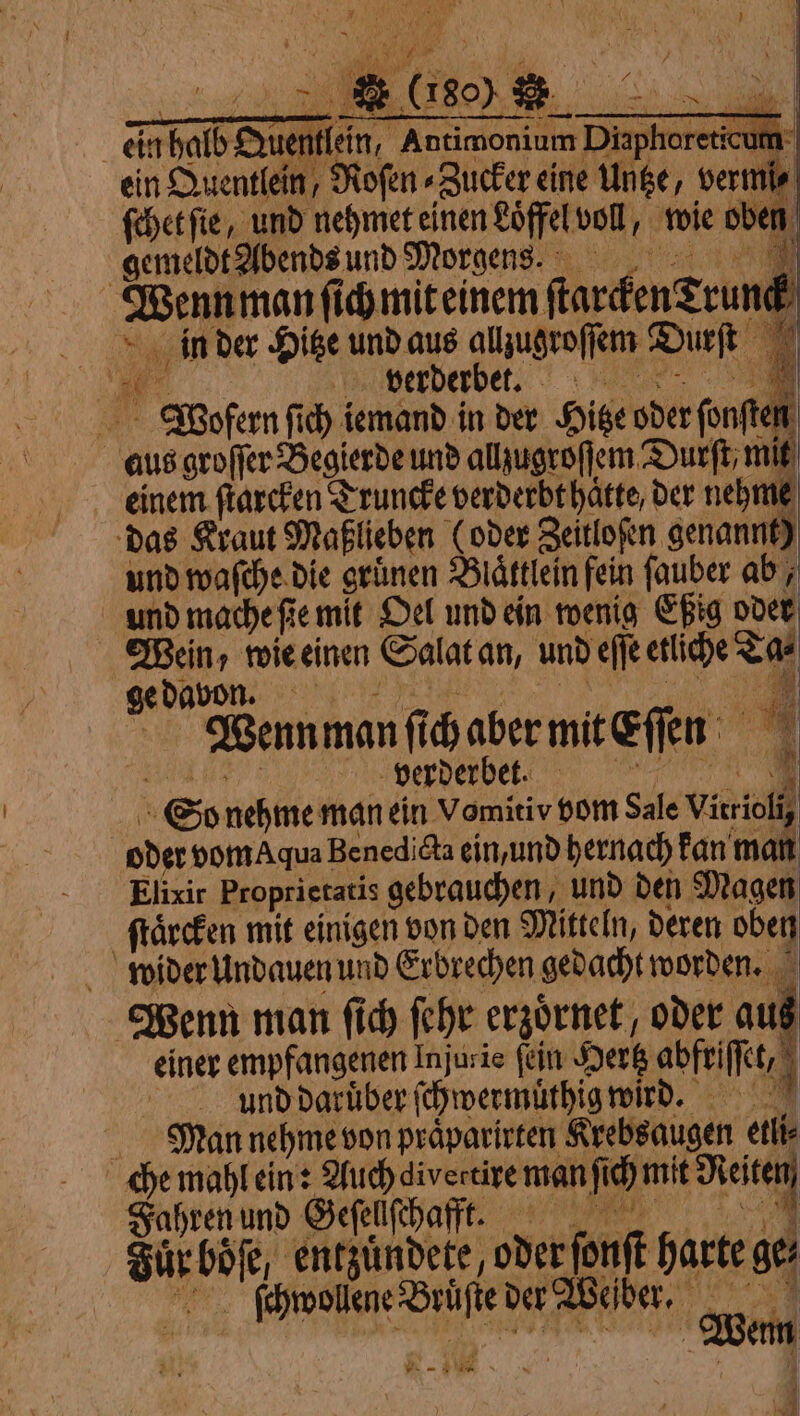 ❀ (180) ❀
ein halb Quentlein, Antimonium Diaphoreticum
ein Quentlein, Roſen-Zucker eine Untze, vermi-
ſchet ſie, und nehmet einen Loͤffel voll, wie oben
gemeldt Abends und Morgens.
Wenn man ſich mit einem ſtarcken Trunck
in der Hitze und aus allzugroſſem Durſt
verderbet.
Wofern ſich iemand in der Hitze oder ſonſten
aus groſſer Begierde und allzugroſſem Durſt, mit
einem ſtarcken Truncke verderbt haͤtte, der nehme
das Kraut Maßlieben (oder Zeitloſen genannt)
und waſche die gruͤnen Blaͤttlein fein ſauber ab,
und mache ſie mit Oel und ein wenig Eßig oder
Wein, wie einen Salat an, und eſſe etliche Ta-
ge davon.
Wenn man ſich aber mit Eſſen
verderbet.
So nehme man ein Vomitiv vom Sale Vitrioli,
oder vom Aqua Benedicta ein, und hernach kan man
Elixir Proprietatis gebrauchen, und den Magen
ſtaͤrcken mit einigen von den Mitteln, deren oben
wider Undauen und Erbrechen gedacht worden.
Wenn man ſich ſehr erzoͤrnet, oder aus
einer empfangenen Injurie ſein Hertz abfriſſet,
und daruͤber ſchwermuͤthig wird.
Man nehme von praͤparirten Krebsaugen etli-
che mahl ein: Auch divertire man ſich mit Reiten,
Fahren und Geſellſchafft.
Fuͤr boͤſe, entzuͤndete, oder ſonſt harte ge-
ſchwollene Bruͤſte der Weiber.
Wenn